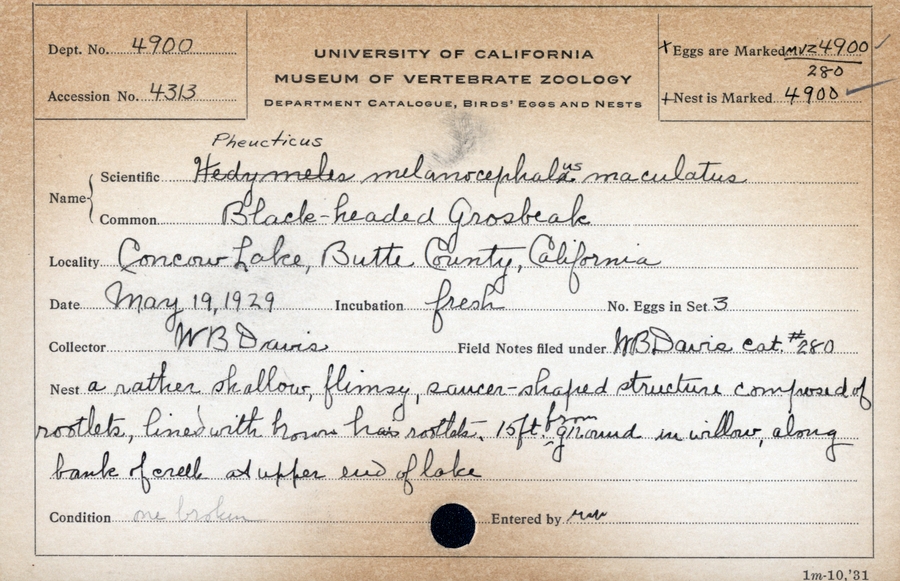 Dept. No. 4900
Accession No. 4313
UNIVERSITY OF CALIFORNIA
MUSEUM OF VERTEBRATE ZOOLOGY
DEPARTMENT CATALOGUE, BIRDS' EGGS AND NESTS
+ Eggs are Marked MVZ 4900 ✓
280
+ Nest is Marked 4900 ✓
Pheucticus
Name { Scientific Hedymeles melanocephalus maculatus
Common Black-headed Grosbeak
Locality Concow Lake, Butte County, California
Date May 19, 1929 Incubation fresh No. Eggs in Set 3
Collector W B Davis Field Notes filed under WB Davis cat. #280
Nest a rather shallow, flimsy, saucer-shaped structure composed of
rootlets, lined with brown hair rootlets. 15ft. from ground in willow, along
bank of creek at upper end of lake
Condition one broken Entered by
1m-10,'31